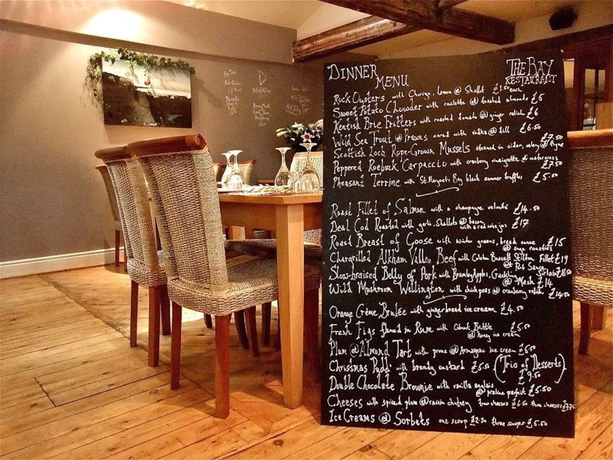 DINNER MENU
THE BAY RESTAURANT
Rock Oysters with Chorizo, Lemon @ Shallot £3.00 each
Sweet Potato Chowder with raclette @ toasted almonds £6
Kentish Brie Fritters with roasted tomato @ ginger relish £6
Wild Sea Trout @ Prawns cured with vodka @ dill £6.50
Scottish Loch Rope-Grown Mussels steamed in cider, celery @ thyme £7.50
Peppered Roebuck Carpaccio with cranberry vinaigrette @ watercress £7.50
Pheasant Terrine with St Margarets Bay black dinner truffles £5.50
Roast Fillet of Salmon with a champagne velouté £14
Deal Cod Roasted with garlic, shallots @ bacon with a red wine jus £17
Roast Breast of Goose with winter greens, bread sauce @ sage £15
Chargrilled Alkham Valley Beef with Colston Bassett Stilton, Fillet £19
Slow-braised Belly of Pork with Bramley Apples, Crackling @ Mash £14
Wild Mushroom Wellington with chickpeas @ cranberry relish £14
Orange Crème Brulée with gingerbread ice cream £4.50
Fresh Figs Poached in Rum with Brittle @ honey ice cream £6.50
Plum @ Almond Tart with prune @ Armagnac ice cream £6.50
Christmas Pudd' with brandy custard £6.50
(Trio of Desserts) £9.50
Double Chocolate Brownie with vanilla anglais @ praline parfait £5.50
Cheeses with spiced plum @ raisin chutney four cheeses £6.50 three cheeses
Ice Creams @ Sorbets one scoop £2.50 three scoops £5.50